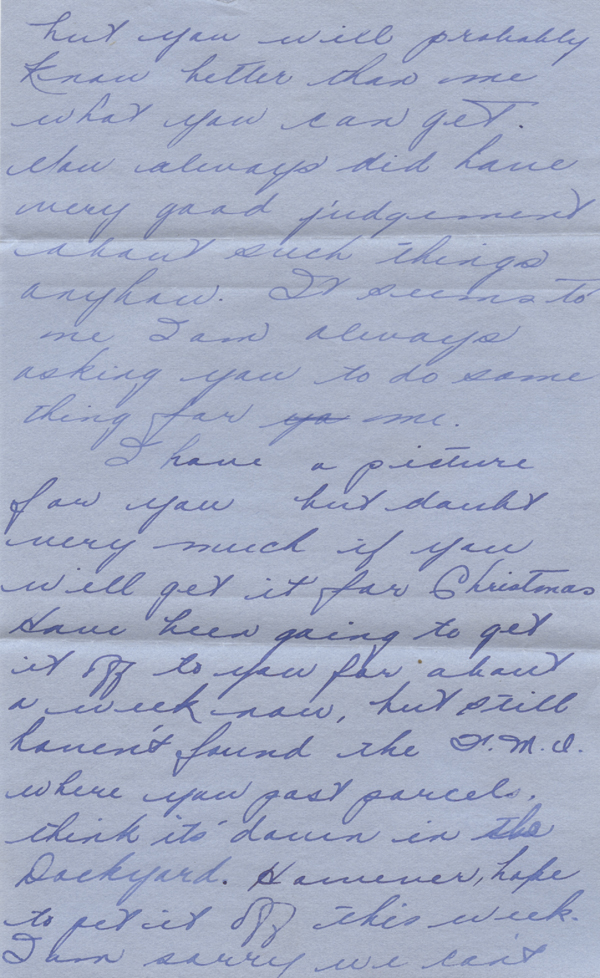 but you will probably
know better than me
what you can get.
You always did have
very good judgement
about such things
anyhow. It seems to
me I am always
asking you to do some
thing for ya me.
I have a picture
for you but doubt
very much if you
will get it for Christmas
Have been going to get
it off to you for about
a week now, but still
haven't found the F.M.O.
where you post parcels.
think its down in the
Dockyard. However, hope
to get it off this week.
I am sorry we can't